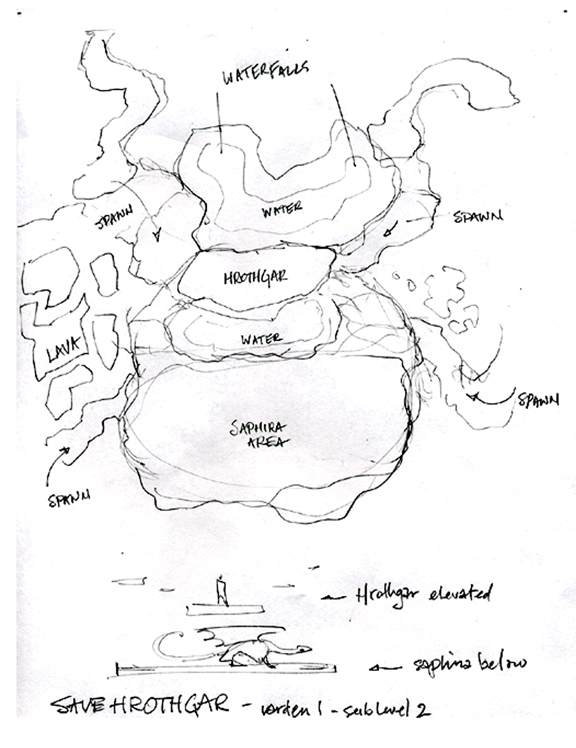 WATERFALLS
WATER
SPAWN
SPAWN
HROTHGAR
WATER
LAVA
SPAWN
SAPHIRA
AREA
SPAWN
Hrothgar elevated
saphira below
SAVE HROTHGAR - varden 1 - sub level 2